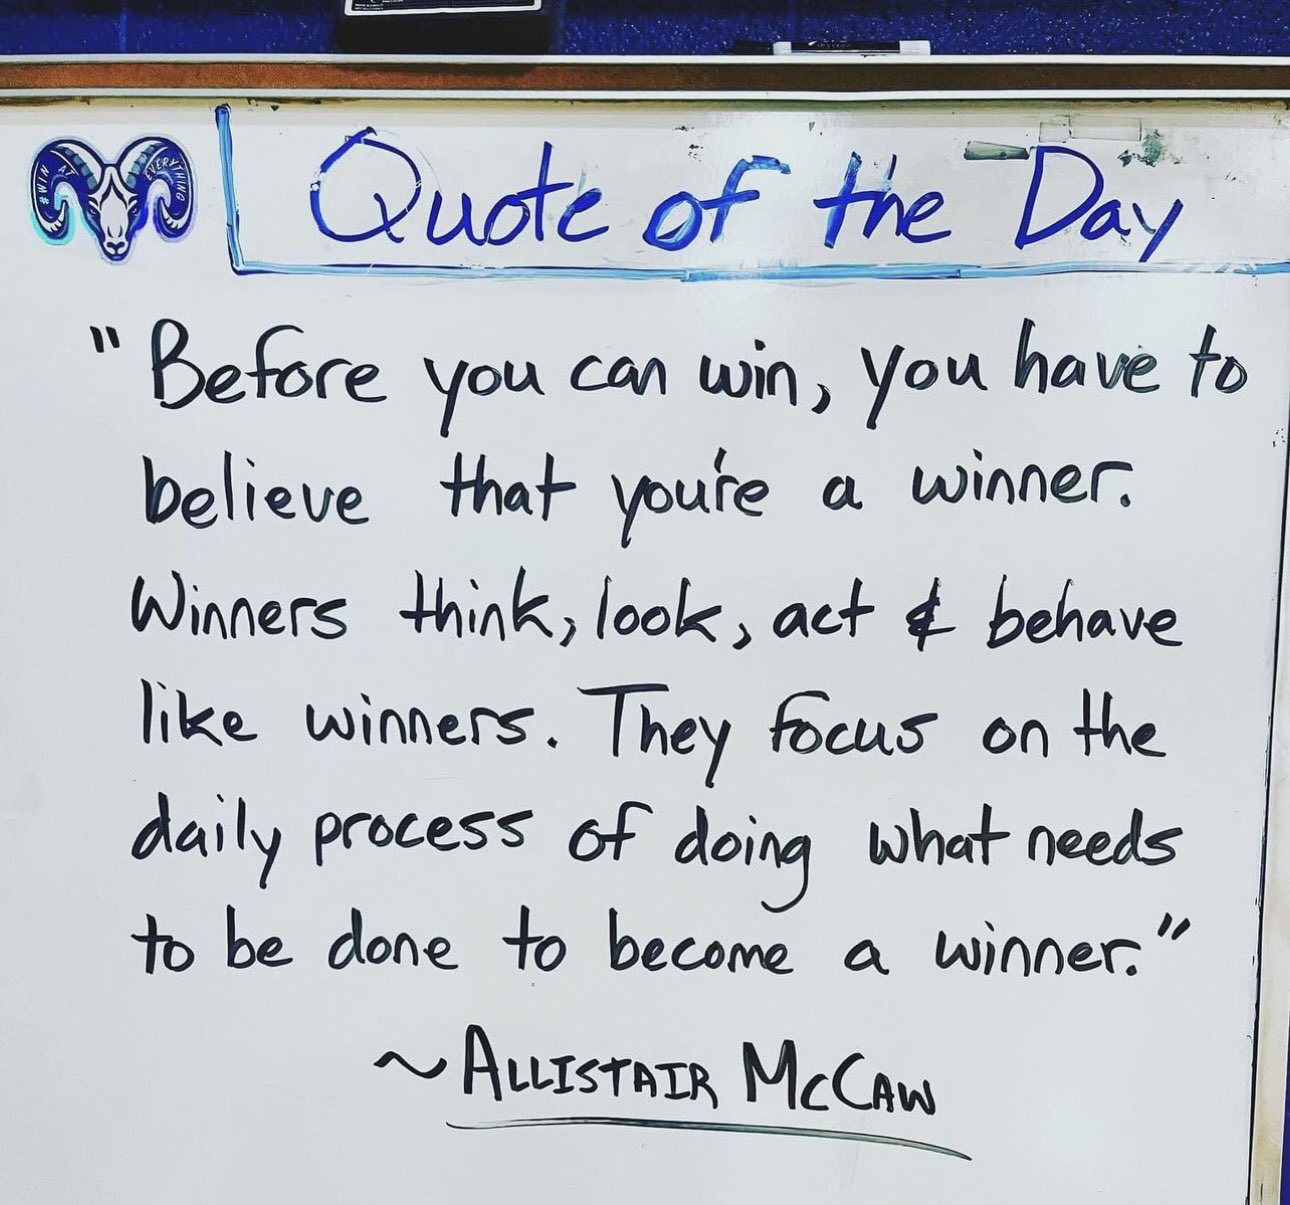 #WIN AT EVERYTHING
Quote of the Day
"Before you can win, you have to
believe that you're a winner.
Winners think, look, act & behave
like winners. They focus on the
daily process of doing what needs
to be done to become a winner."
~ALLISTAIR McCAW